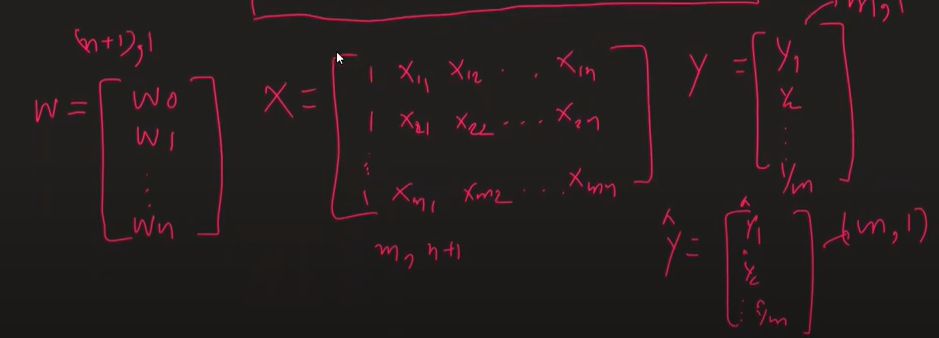 m, 1
(n+1), 1
W = [ W0 W1 ⋮ Wn ]
X = [ 1 X11 X12 . . X1n
1 X21 X22 ... X2n
⋮
1 Xm1 Xm2 ... Xmn ]
m, n+1
Y = [ Y1 Y2 ⋮ Ym ]
Ŷ = [ Ŷ1 Ŷ2 ⋮ Ŷm ] (m, 1)